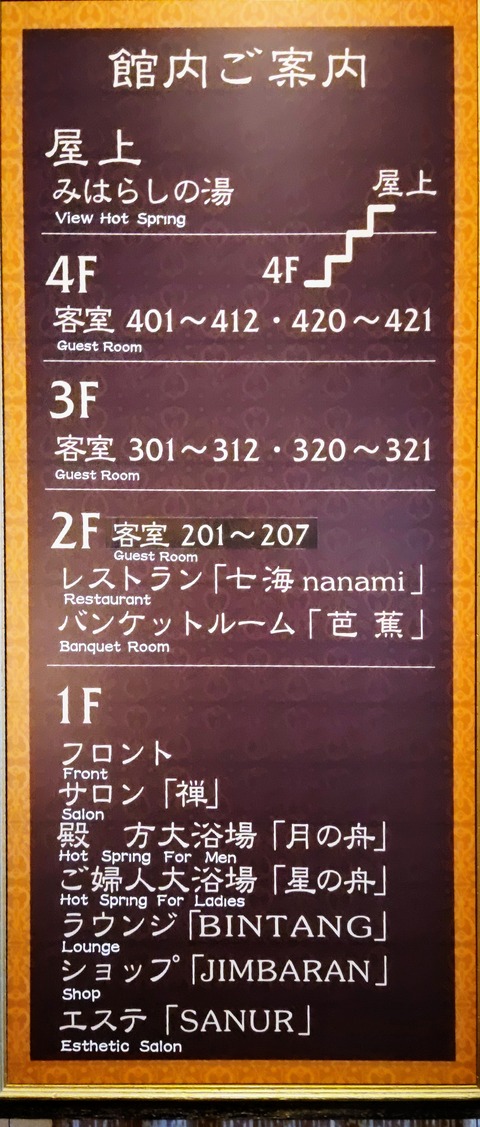 館内ご案内
屋上
みはらしの湯
View Hot Spring
屋上
4F
4F
客室 401〜412・420〜421
Guest Room
3F
客室 301〜312・320〜321
Guest Room
2F 客室 201〜207
Guest Room
レストラン「七海 nanami」
Restaurant
バンケットルーム「芭蕉」
Banquet Room
1F
フロント
Front
サロン「禅」
Salon
殿 方大浴場「月の舟」
Hot Spring For Men
ご婦人大浴場「星の舟」
Hot Spring For Ladies
ラウンジ「BINTANG」
Lounge
ショップ「JIMBARAN」
Shop
エステ「SANUR」
Esthetic Salon